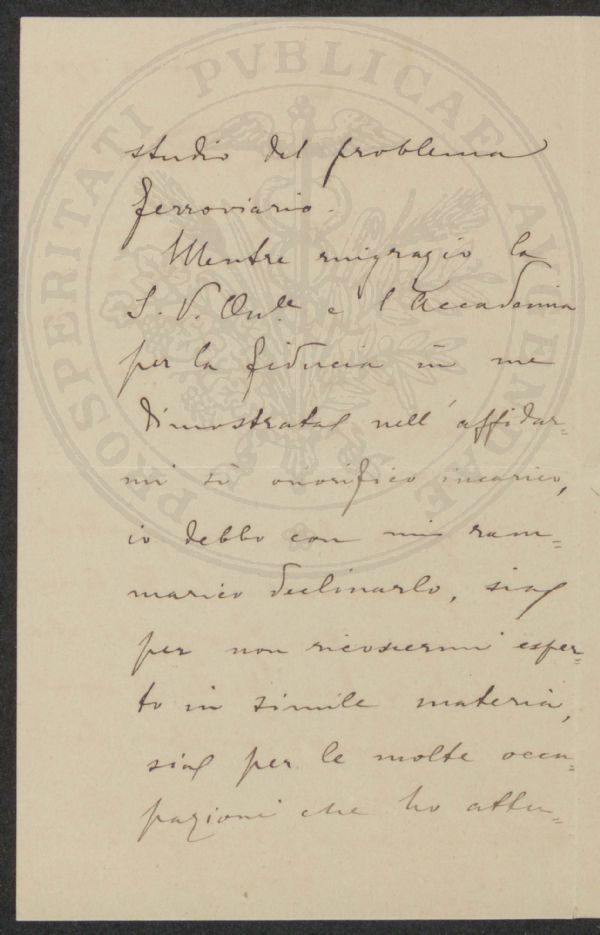 PROSPERITATI PVBLICAE AVGENDAE
studio del problema
ferroviario.
Mentre ringrazio la
S. V. Onle e l'Accademia
per la fiducia in me
dimostrata nell'affidar=
mi sì onorifico incarico,
io debbo con mio ram=
marico declinarlo, sia
per non riconoscermi esper=
to in simile materia,
sia per le molte occu=
pazioni che ho attu=